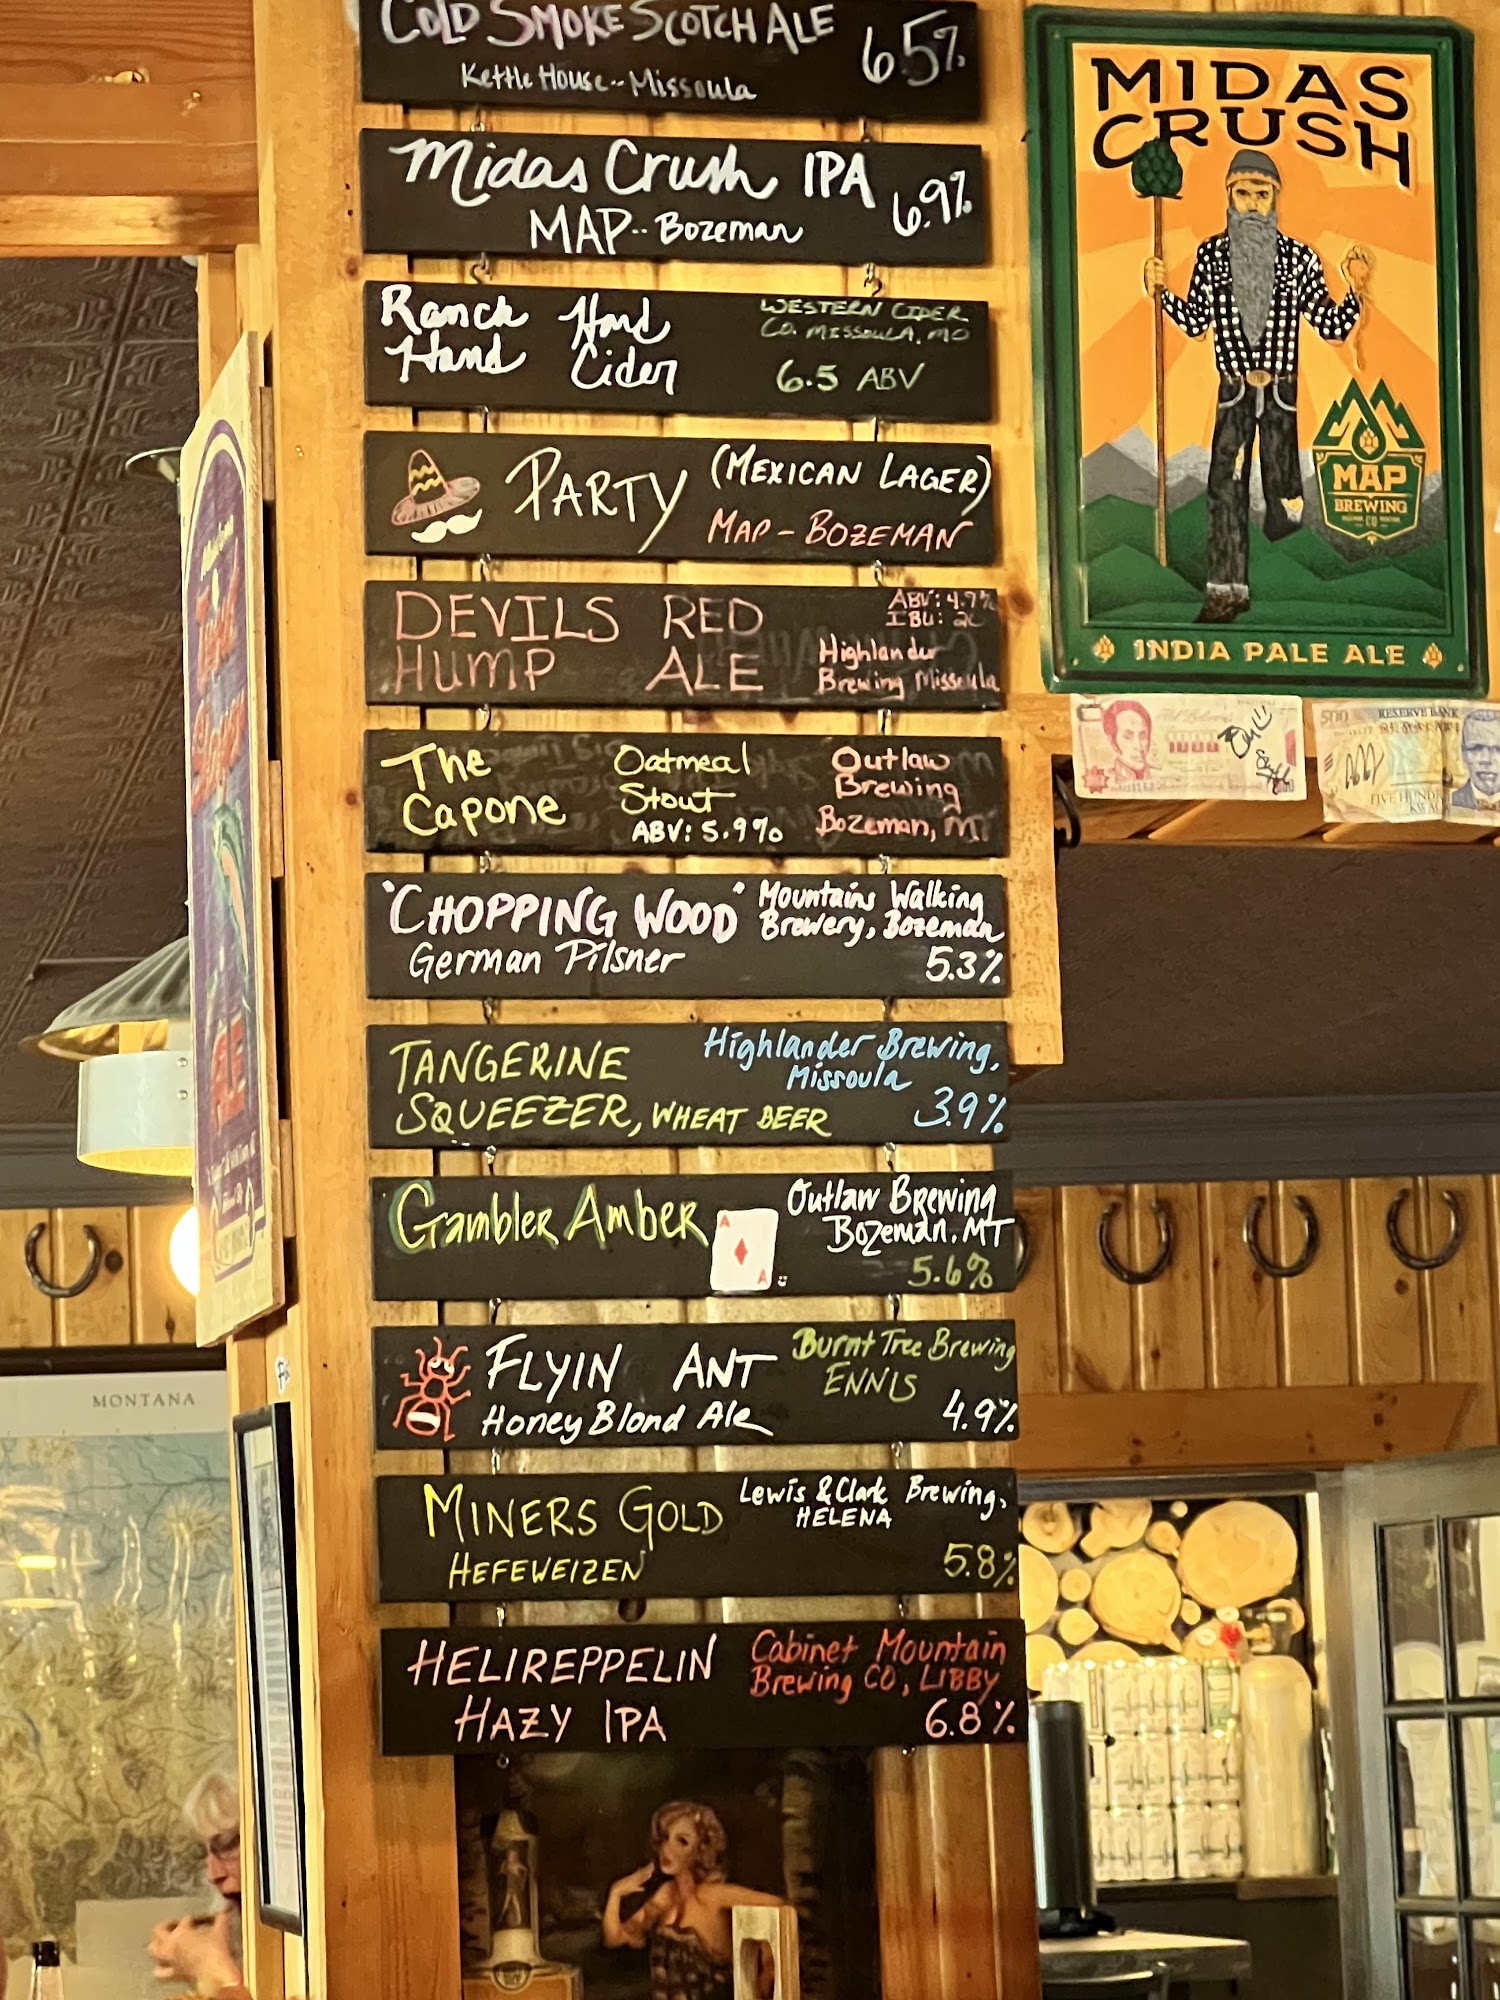 COLD SMOKE SCOTCH ALE 65%
Kettle House -- Missoula
Midas Crush IPA 6.9%
MAP -- Bozeman
Ranch Hand Hard Cider
WESTERN CIDER
CO. MISSOULA, MO
6.5 ABV
PARTY (MEXICAN LAGER)
MAP - BOZEMAN
DEVILS RED
HUMP ALE
ABV: 4.7%
IBU:
Highlander
Brewing Missoula
The Capone
Oatmeal
Stout
ABV: 5.9%
Outlaw
Brewing
Bozeman, MT
"CHOPPING WOOD"
German Pilsner
Mountains Walking
Brewery, Bozeman
5.3%
TANGERINE
SQUEEZER, WHEAT BEER
Highlander Brewing,
Missoula
3.9%
Gambler Amber
A
A
Outlaw Brewing
Bozeman, MT
5.6%
FLYIN ANT
Honey Blond Ale
Burnt Tree Brewing
ENNIS
4.9%
MINERS GOLD
HEFEWEIZEN
Lewis & Clark Brewing,
HELENA
5.8%
HELIREPPELIN
HAZY IPA
Cabinet Mountain
Brewing CO, LIBBY
6.8%
MIDAS
CRUSH
MAP
BREWING
CO
INDIA PALE ALE
1000
500 RESERVE BANK
FIVE
MONTANA